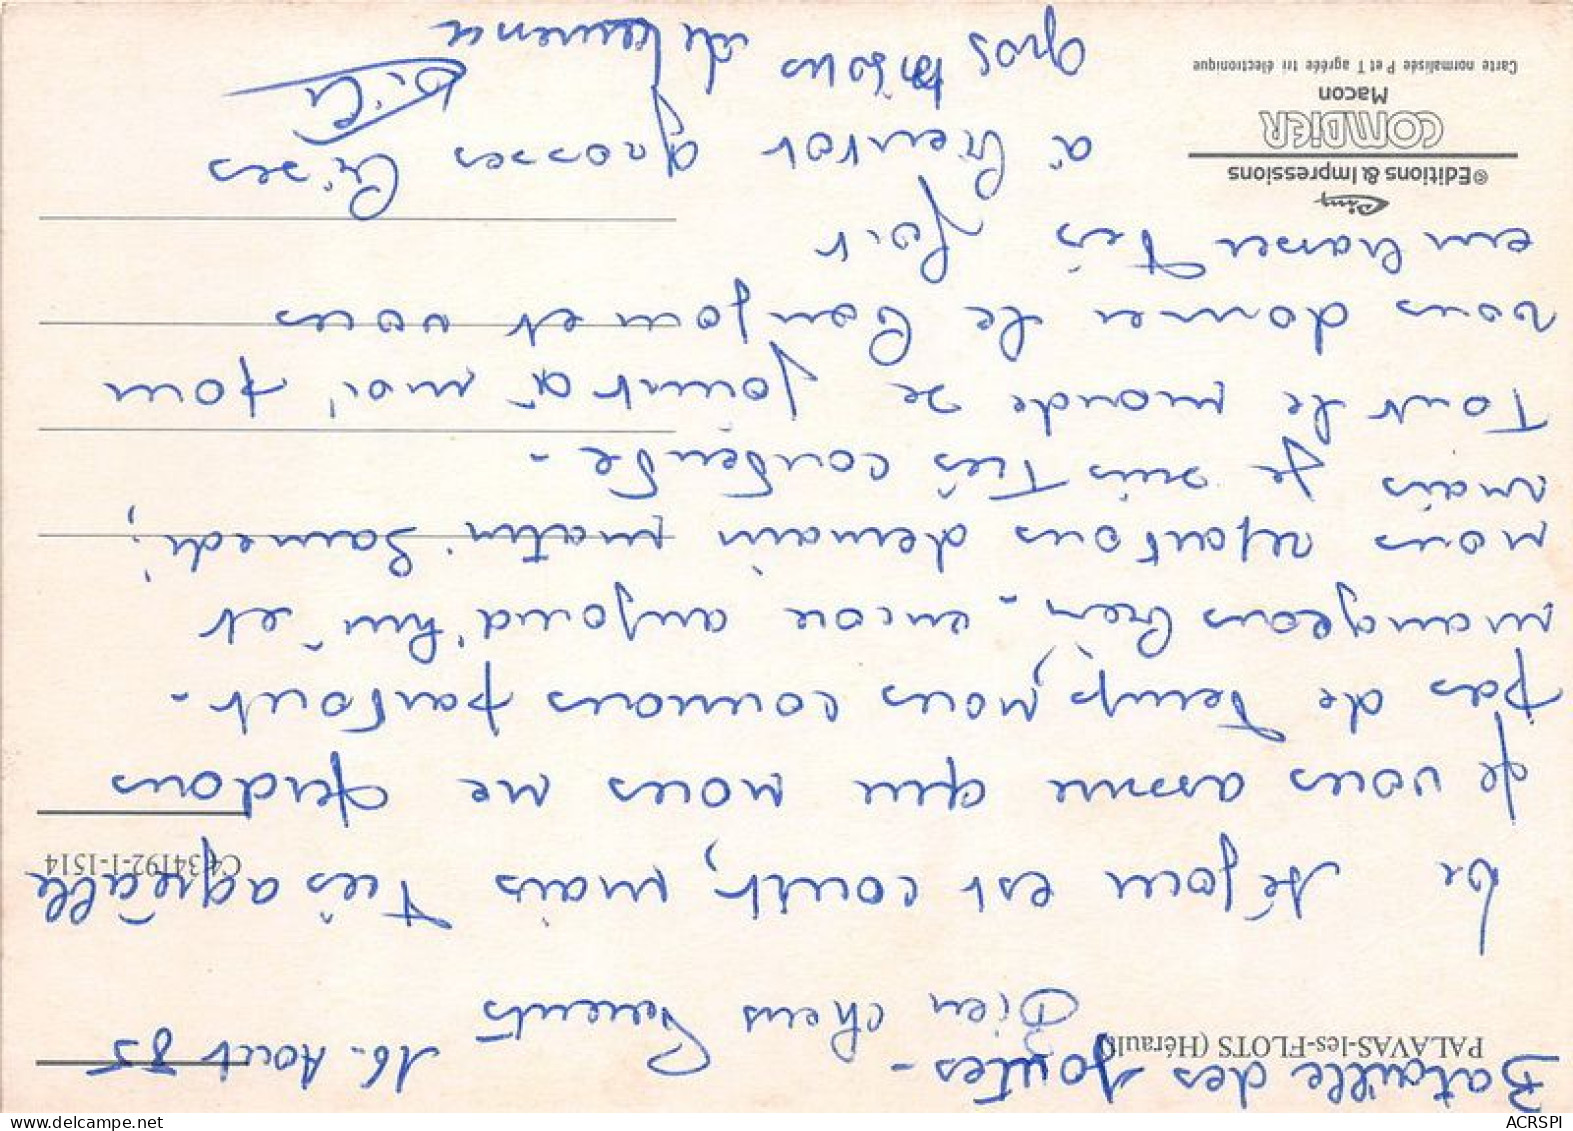 PALAVAS-les-FLOTS (Hérault)
Bataille des Joutes -
16. Août 85
Bien chers Parents
Le séjour est court, mais Très agréable
C4 34192-1-1514
je vous assure que nous ne perdons
pas de Temps, nous courrons partout -
mangeons bien - encore aujourd'hui et
nous repartons demain matin Samedi,
mais je suis Très contente -
Tout le monde se joint à moi pour
vous donner le bonjour et vous
embrasser Très fort
à bientot grosses bises
gros bisous de
©Editions & Impressions
COMBIER
Macon
Carte normalisée P et T agréée tri électronique
ACRSPI